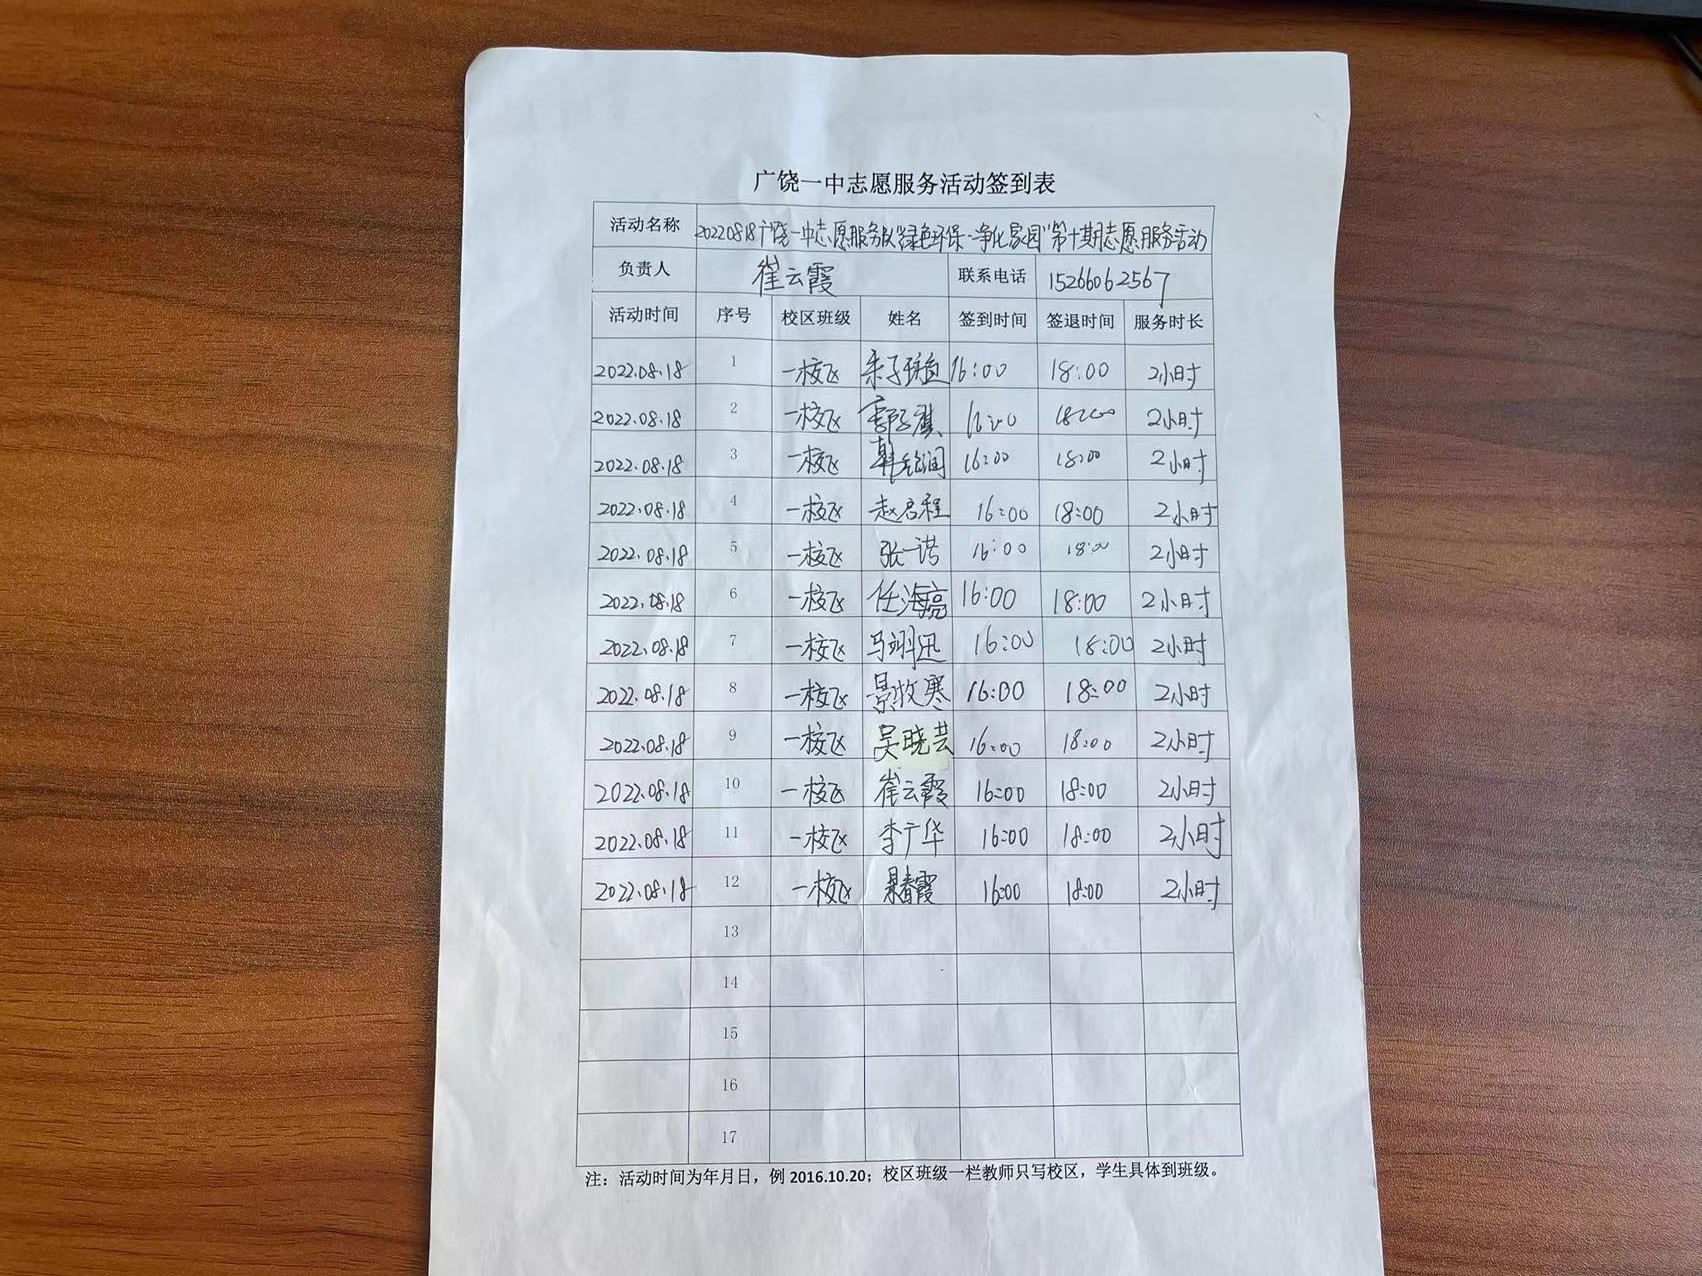 广饶一中志愿服务活动签到表
活动名称 20220818广饶一中志愿服务队"绿色环保·净化家园"第十期志愿服务活动
负责人 崔云霞 联系电话 15266062567
活动时间 序号 校区班级 姓名 签到时间 签退时间 服务时长
2022.08.18 1 一校区 16:00 18:00 2小时
2022.08.18 2 一校区 16:00 18:00 2小时
2022.08.18 3 一校区 16:00 18:00 2小时
2022.08.18 4 一校区 赵启程 16:00 18:00 2小时
2022.08.18 5 一校区 张一诺 16:00 18:00 2小时
2022.08.18 6 一校区 任海亮 16:00 18:00 2小时
2022.08.18 7 一校区 马翊迅 16:00 18:00 2小时
2022.08.18 8 一校区 景牧寒 16:00 18:00 2小时
2022.08.18 9 一校区 吴晓芸 16:00 18:00 2小时
2022.08.18 10 一校区 崔云霞 16:00 18:00 2小时
2022.08.18 11 一校区 李广华 16:00 18:00 2小时
2022.08.18 12 一校区 16:00 18:00 2小时
13
14
15
16
17
注：活动时间为年月日，例 2016.10.20；校区班级一栏教师只写校区，学生具体到班级。